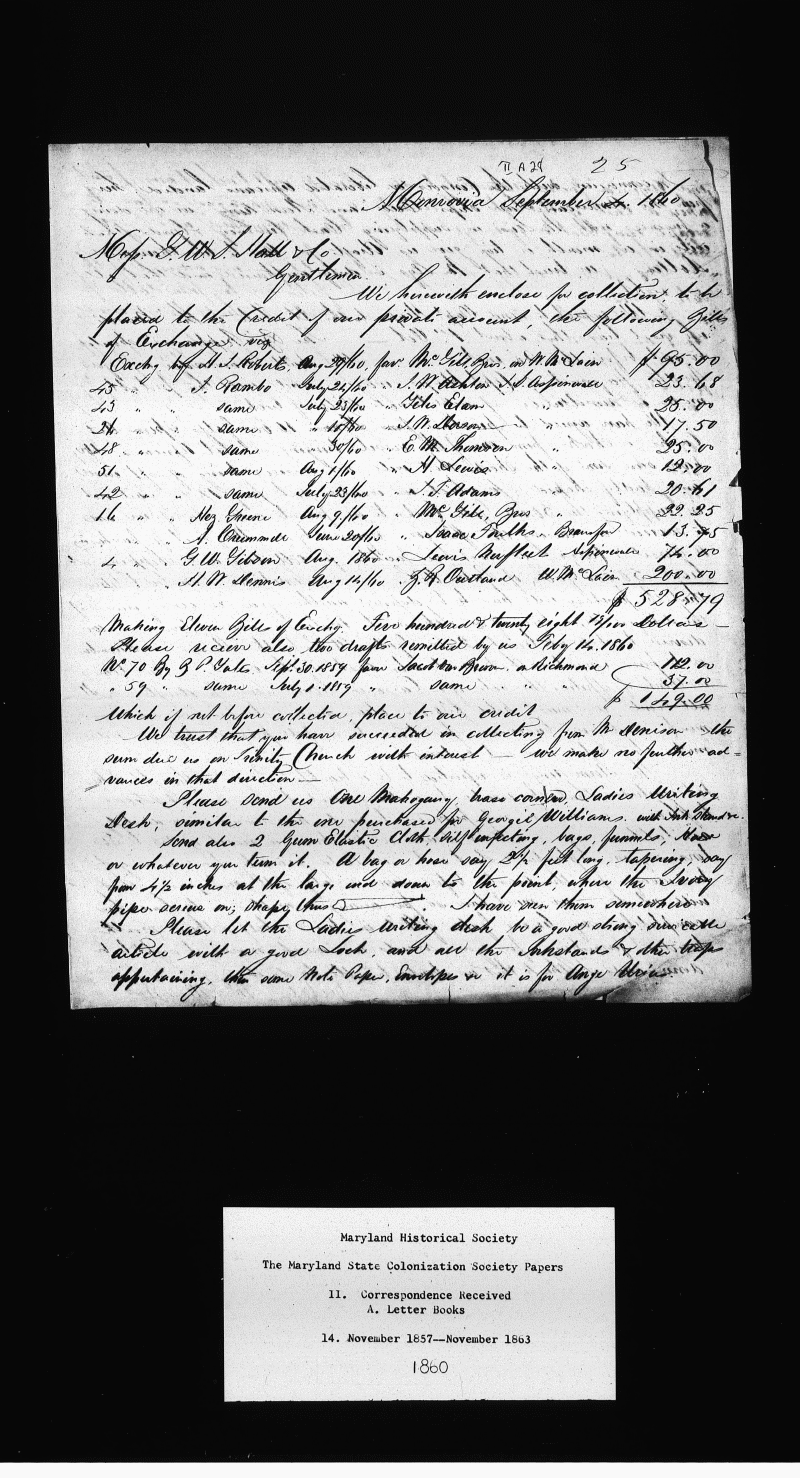 II A 28 25
Monrovia September 4. 1860
Mess G W S Hall & Co
Gentlemen
We herewith enclose for collection, to be
placed to the Credit of our private account, the following Bills
of Exchange viz
Exchg by H. J. Roberts, Aug 29/60, favr McGill Bros, on W. McLain $95.00
45 " " J. Rambo July 24/60 " J. W. Ashton J. S. Aspinwall 23.68
43 " " same July 23/60 " Titus Elam " 25.00
24 " " same " 10/60 " " 17.50
48 " " same 30/60 " E. M. Thomson " 25.00
51 " " same Aug 1/60 " H Lewis " 12.00
42 " " same July 23/60 " J. J. Adams 20.61
16 " " Hez Greene Aug 9/60 " McGill, Bros " 22.25
" A. Crummell June 20/60 " Isaac 13.75
4 " G. W. Gibson Aug. 1860 " Lewis Aspinwall 74.00
" H. W. Dennis Aug 14/60 " Outland W. McLain 200.00
$528.79
Making Eleven Bills of Exchg. Five hundred & twenty eight Dollars
Please recieve also two drafts remitted by us Feby 14. 1860
No. 70 By B P. Yates Sept. 30. 1859 favor Jacob Van Brown on Richmond 112.00
" 59 " same July 1. 1859 " same " " 37.00
$149.00
Which if not before collected, place to our credit
We trust that you have succeeded in collecting from Mr Denison the
sum due us on Trinity Church with interest — we make no further ad=
vances in that direction —
Please send us One Mahogany, brass corner, Ladies Writing
Desk, similar to the one purchased for Georgie Williams. with Ink Stand &c.
Send also 2 Gum Elastic Cloth, self injecting, bags, funnels, Hose
or whatever you term it. A bag or hose say 2½ feet long, tapering, say
from 4½ inches at the large end down to the point, where the Ivory
pipe screws on; shape thus . I have seen them somewhere
Please let the Ladies writing desk be a good strong servicable
article with a good Lock, and all the Inkstands & other traps
appertaining, then some Note Paper, Envelopes & it is for Ange
Maryland Historical Society
The Maryland State Colonization Society Papers
11. Correspondence Received
A. Letter Books
14. November 1857--November 1863
1860